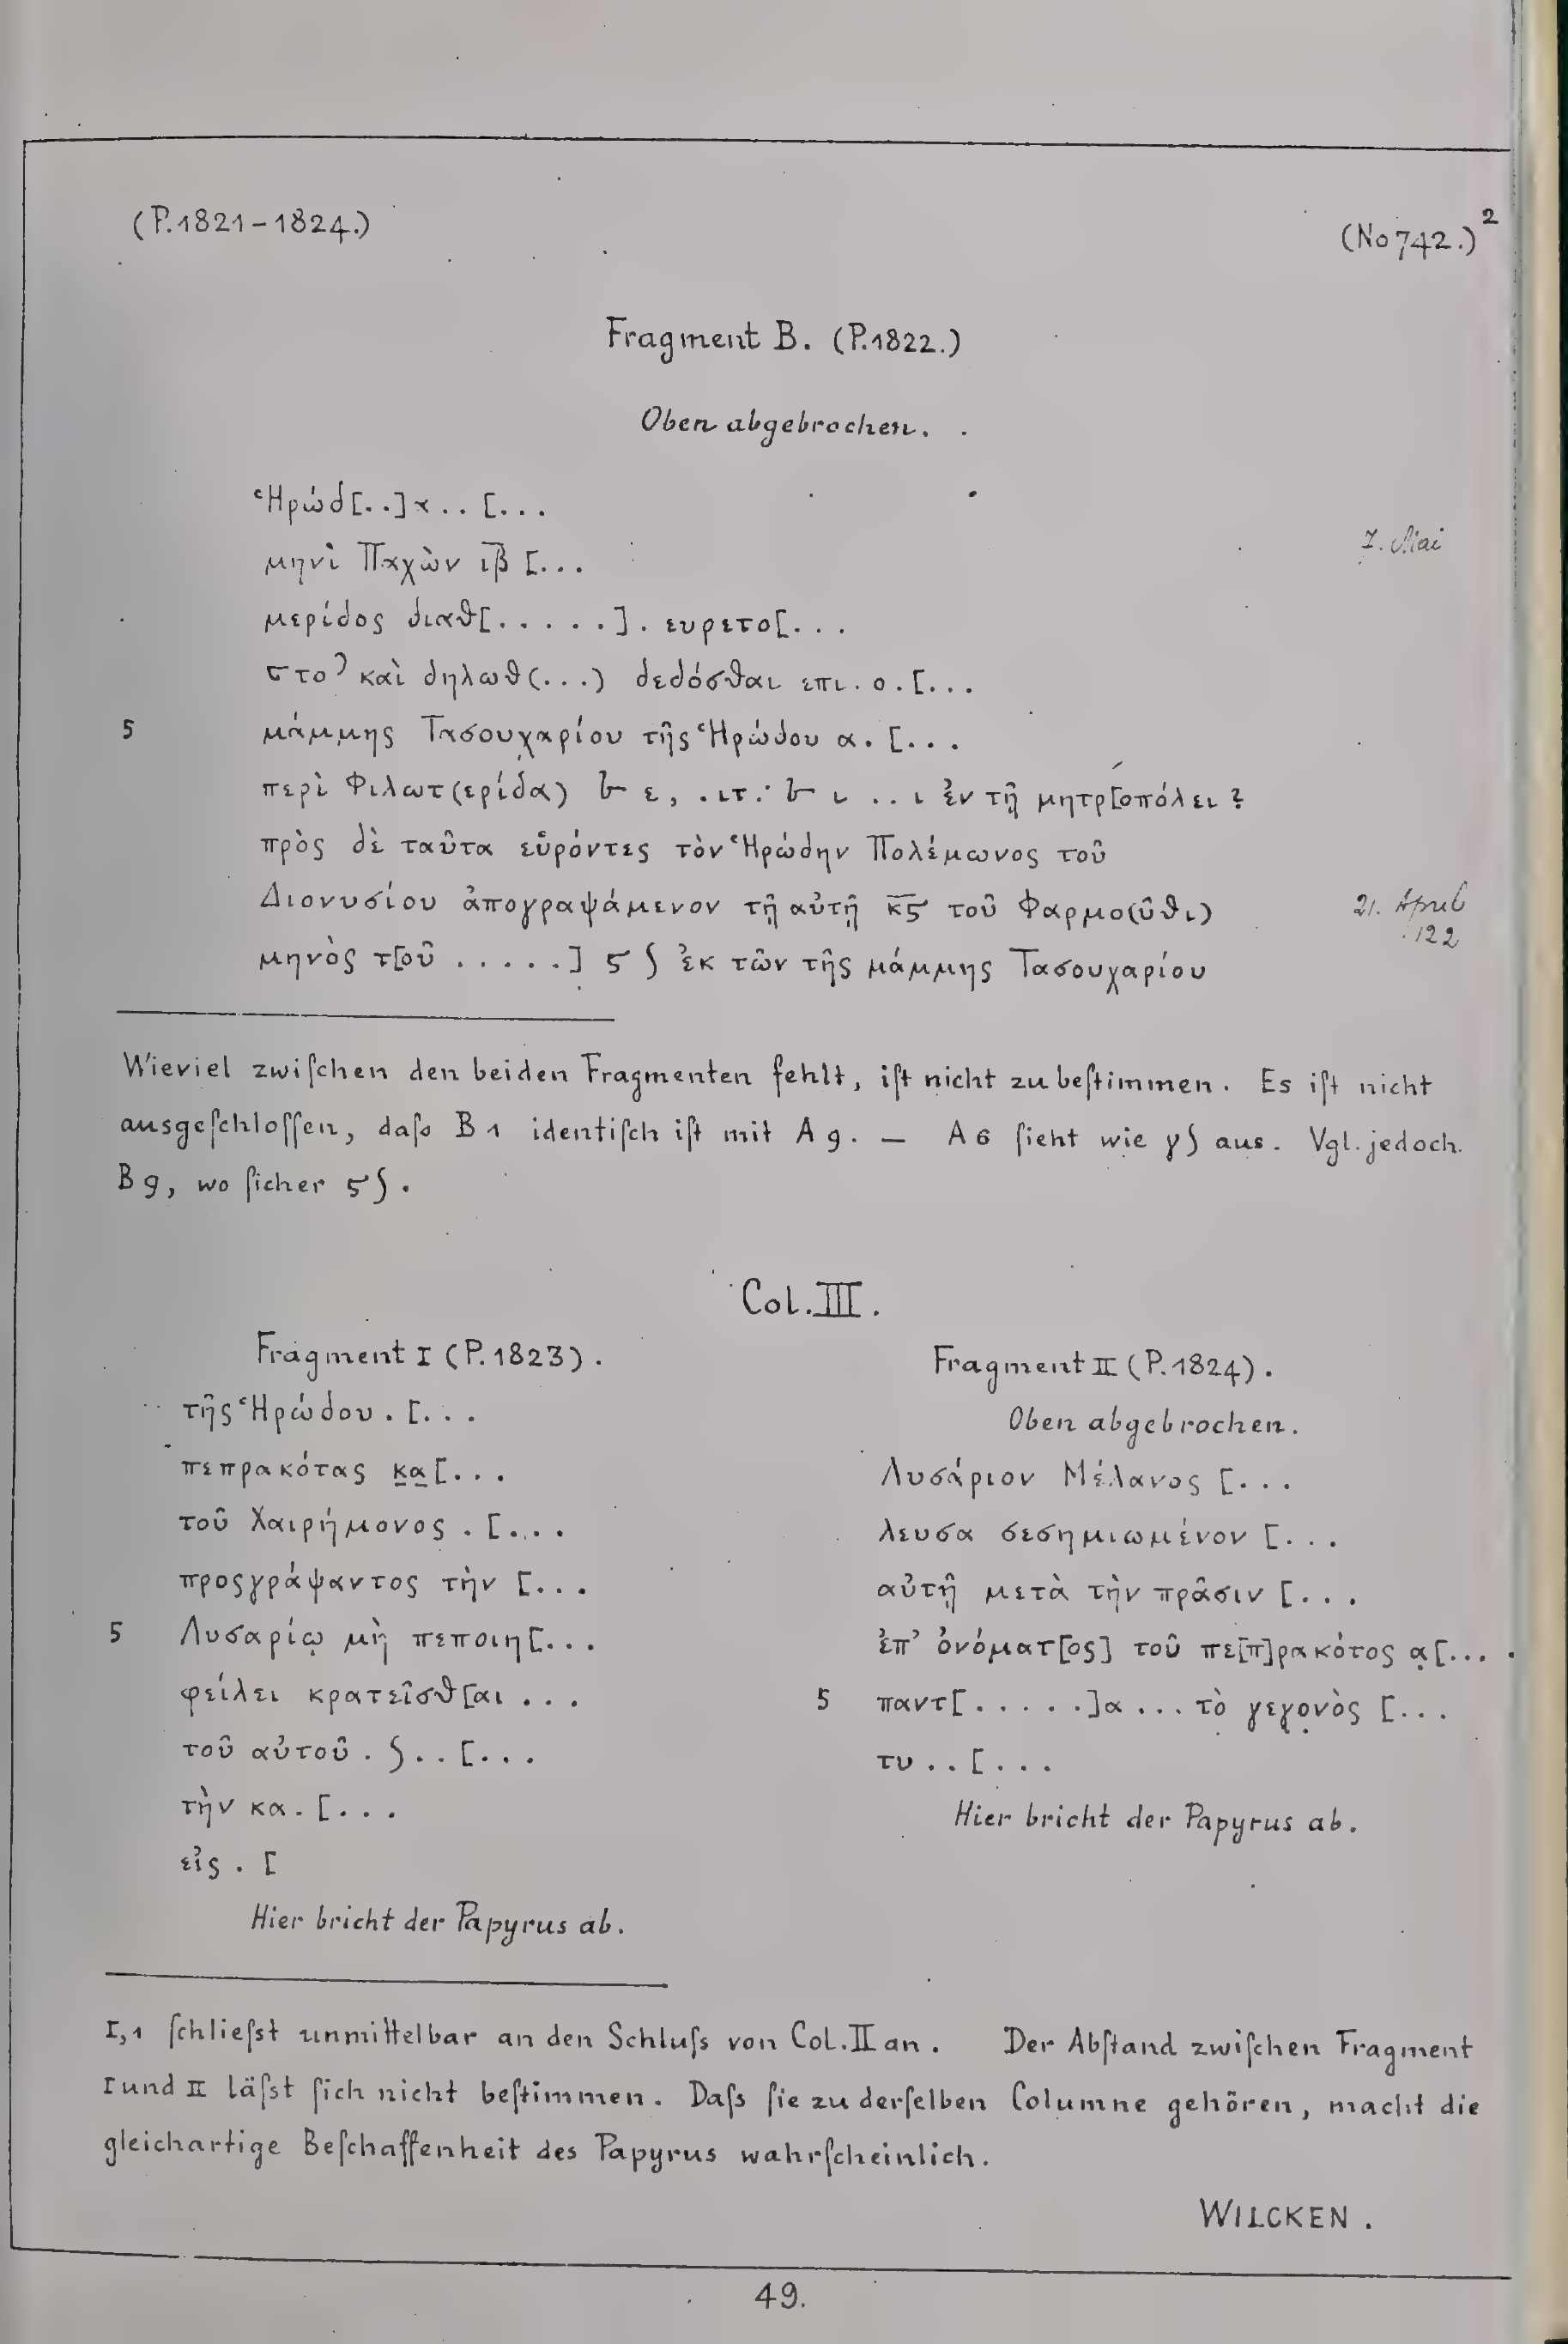 (P.1821-1824.)
(No 742.)²
Fragment B. (P.1822.)
Oben abgebrochen.
Ἡρώδ[..]α..[...
μηνὶ Παχὼν ιβ̅ [...
7. Mai
μερίδος διαθ[.....]. ευρετο[...
ϛτο? καὶ δηλωθ(...) δεδόσθαι επι.ο.[...
5 μάμμης Τασουχαρίου τῆς Ἡρώδου α.[...
περὶ Φιλωτ(ερίδα) ε, ἐν τῇ μητρ[οπόλει?
πρὸς δὲ ταῦτα εὑρόντες τὸν Ἡρώδην Πολέμωνος τοῦ
Διονυσίου ἀπογραψάμενον τῇ αὐτῇ κ̅ϛ̅ τοῦ Φαρμο(ῦθι)
21. April
122
μηνὸς τ[οῦ .....] ϛ ∫ ἐκ τῶν τῆς μάμμης Τασουχαρίου
Wieviel zwiſchen den beiden Fragmenten fehlt, iſt nicht zu beſtimmen. Es iſt nicht
ausgeſchloſſen, daſs B 1 identiſch iſt mit A 9. — A 6 ſieht wie γ∫ aus. Vgl. jedoch
B 9, wo ſicher ϛ∫.
Col. III.
Fragment I (P.1823).
τῆς Ἡρώδου.[...
πεπρακότας κ̲α̲[...
τοῦ Χαιρήμονος.[....
προςγράψαντος τὴν [...
5 Λυσαρίῳ μὴ πεποιη[...
φείλει κρατεῖσθ[αι ...
τοῦ αὐτοῦ. ∫..[...
τὴν κα.[...
εἰς.[
Hier bricht der Papyrus ab.
Fragment II (P.1824).
Oben abgebrochen.
Λυσάριον Μέλανος [...
λευσα σεσημιωμένον [...
αὐτῇ μετὰ τὴν πρᾶσιν [...
ἐπ’ ὀνόματ[ος] τοῦ πε[π]ρακότος α̣[...
5 παντ[.....]α...τὸ γεγο̣νὸς [...
τυ..[...
Hier bricht der Papyrus ab.
I,1 ſchlieſst unmittelbar an den Schluſs von Col. II an. Der Abſtand zwiſchen Fragment
I und II läſst ſich nicht beſtimmen. Daſs ſie zu derſelben Columne gehören, macht die
gleichartige Beſchaffenheit des Papyrus wahrſcheinlich.
WILCKEN.
49.